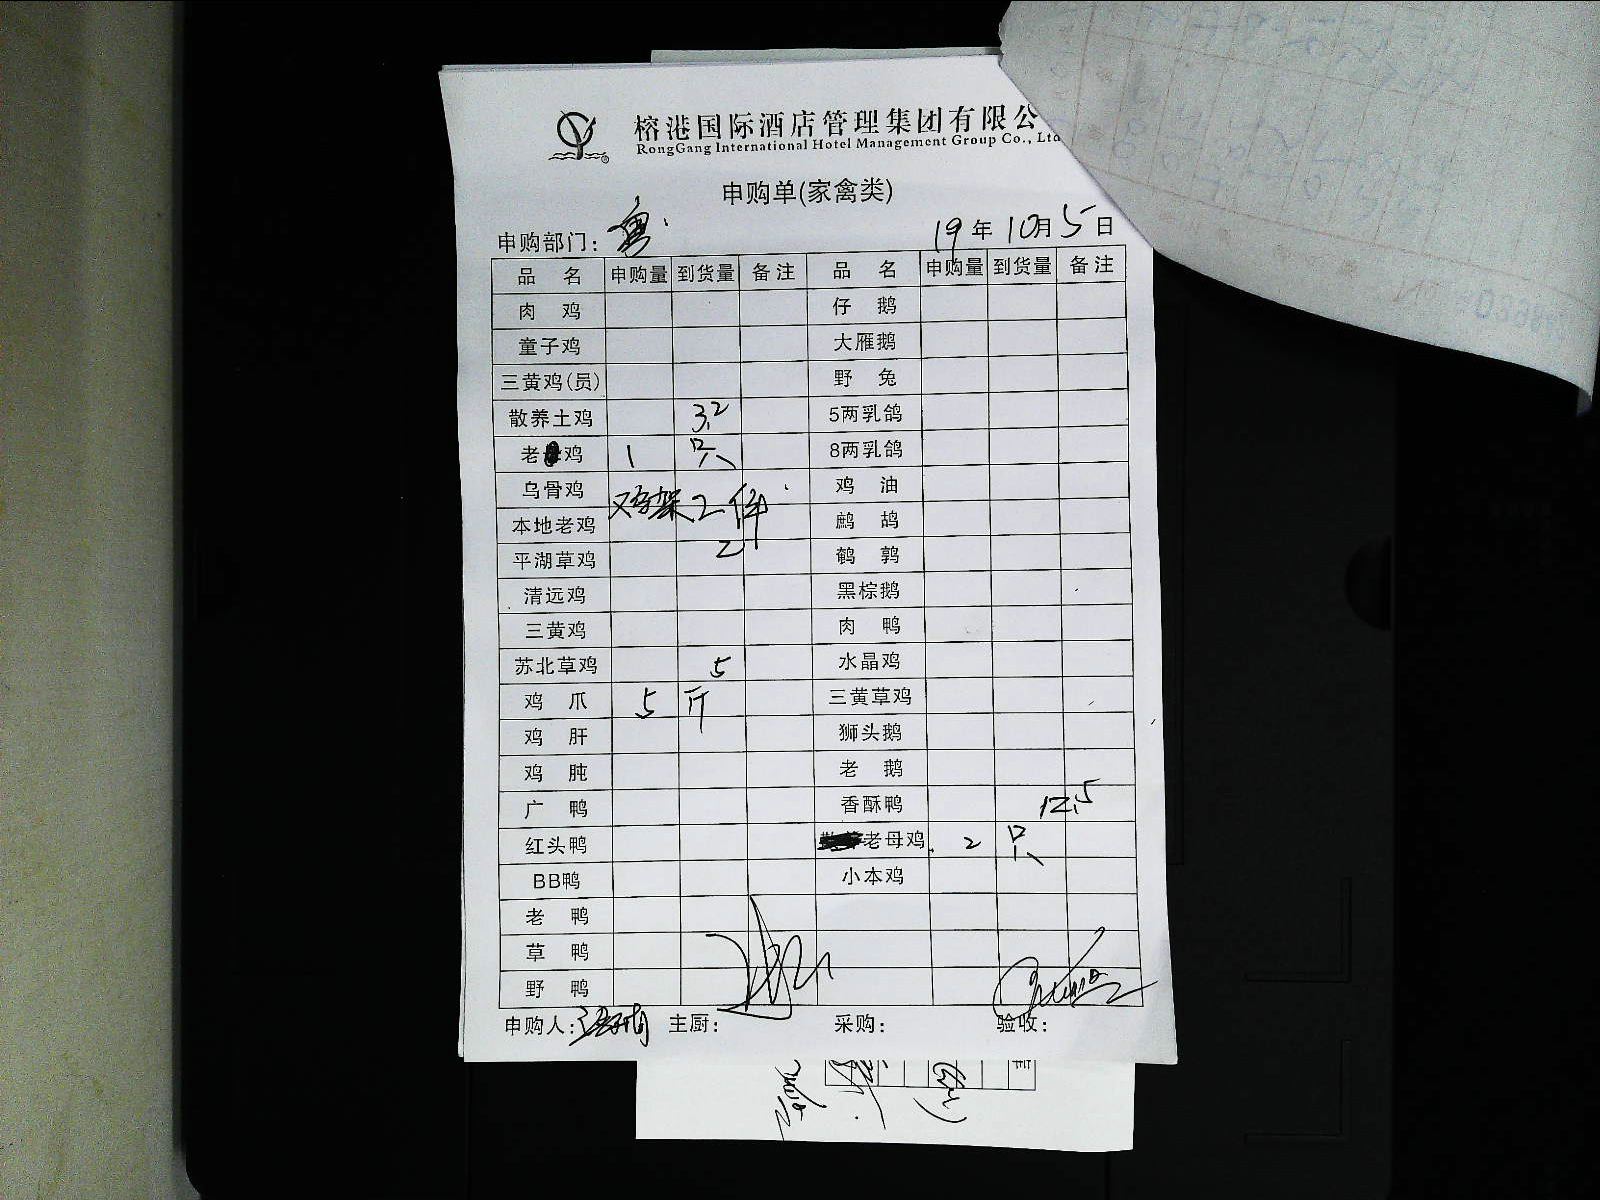 榕港国际酒店管理集团有限公
RongGang International Hotel Management Group Co., Ltd
申购单(家禽类)
申购部门: 19年10月5日
品 名 申购量 到货量 备注 品 名 申购量 到货量 备注
肉 鸡 仔 鹅
童子鸡 大雁鹅
三黄鸡(员) 野 兔
散养土鸡 3.2 5两乳鸽
老鸡 1 只 8两乳鸽
乌骨鸡 鸡架2件 鸡 油
本地老鸡 鹧 鸪
平湖草鸡 2 鹌 鹑
清远鸡 黑棕鹅
三黄鸡 肉 鸭
苏北草鸡 5 水晶鸡
鸡 爪 5 斤 三黄草鸡
鸡 肝 狮头鹅
鸡 肫 老 鹅
广 鸭 香酥鸭 12.5
红头鸭 老母鸡 2 只
BB鸭 小本鸡
老 鸭
草 鸭
野 鸭
申购人: 主厨: 采购: 验收: